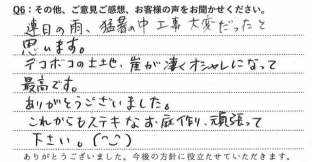 Q6：その他、ご意見ご感想、お客様の声をお聞かせください。
連日の雨、猛暑の中工事大変だったと
思います。
デコボコの土地、崖が凄くオシャレになって
最高です。
ありがとうございました。
これからもステキなお庭作り、頑張って
下さい。(^^)
ありがとうございました。今後の方針に役立たせていただきます。